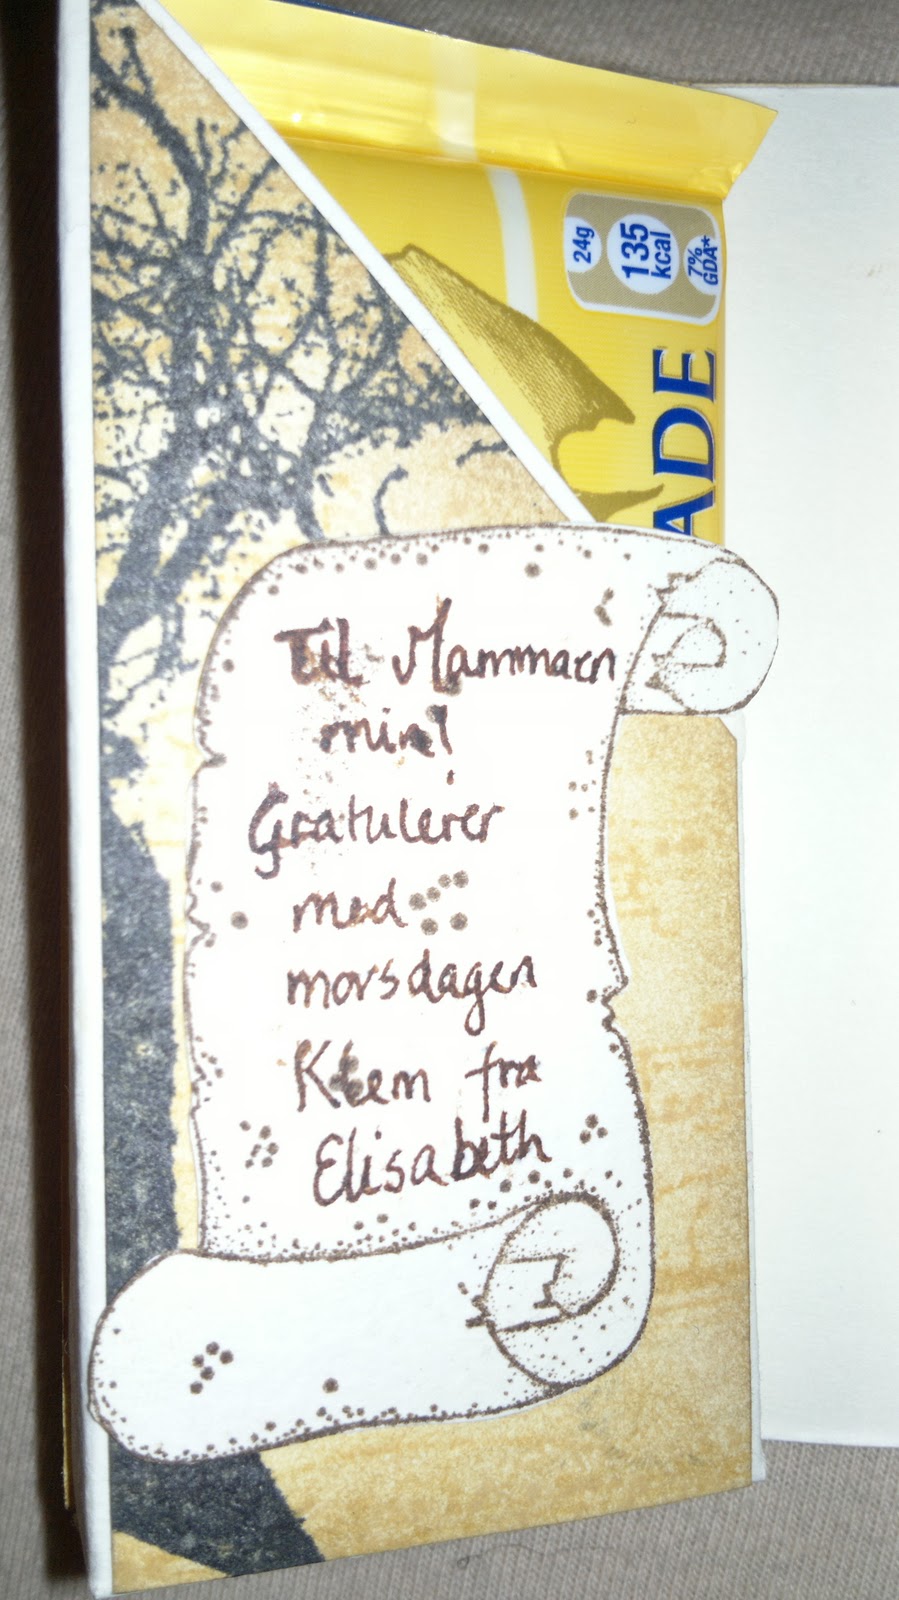 24g
135
kcal
7%
GDA*
ADE
Til Mammaen
min!
Gratulerer
med
morsdagen
Klem fra
Elisabeth